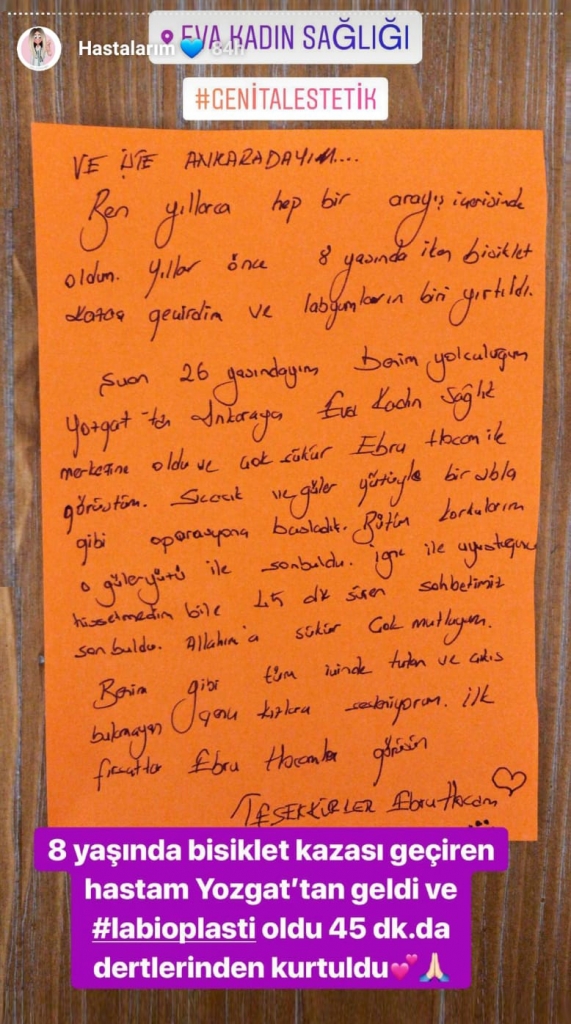 EVA KADIN SAĞLIĞI
Hastalarım 💙 84h
#GENİTALESTETİK
VE İŞTE ANKARADAYIM....
Ben yıllarca hep bir arayış içerisinde
oldum. Yıllar önce 8 yaşında iken bisiklet
kazası geçirdim ve labyumların biri yırtıldı.
Şuan 26 yaşındayım Benim yolculuğum
Yozgat'tan Ankaraya Eva Kadın Sağlık
merkezine oldu ve çok şükür Ebru Hocam ile
görüştüm. Sıcacık ve güler yüzüyle bir abla
gibi operasyona başladık. Bütün korkularım
o güleryüzü ile sonbuldu. İğne ile uyuştuğunu
hissetmedim bile 45 dk süren sohbetimiz
son buldu. Allahım'a şükür çok mutluyum.
Benim gibi tüm içinde tutan ve çıkış
bulamayan genç kızlara sesleniyorum. ilk
fırsatta Ebru Hocamla görüşün
TEŞEKKÜRLER Ebru Hocam ♡
...
8 yaşında bisiklet kazası geçiren
hastam Yozgat’tan geldi ve
#labioplasti oldu 45 dk.da
dertlerinden kurtuldu💕🙏🏻